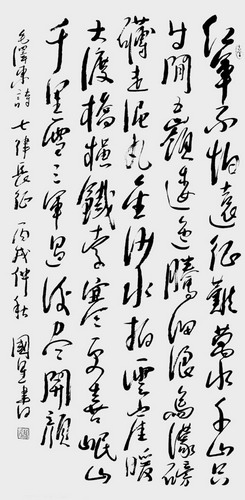 紅軍不怕遠征難萬水千山只
等閒五嶺逶迤騰細浪烏濛磅
礴走泥丸金沙水拍雲崖暖
大渡橋橫鐵索寒更喜岷山
千里雪三軍過後盡開顏
毛澤東詩 七律長征 丙戌仲秋 國星書